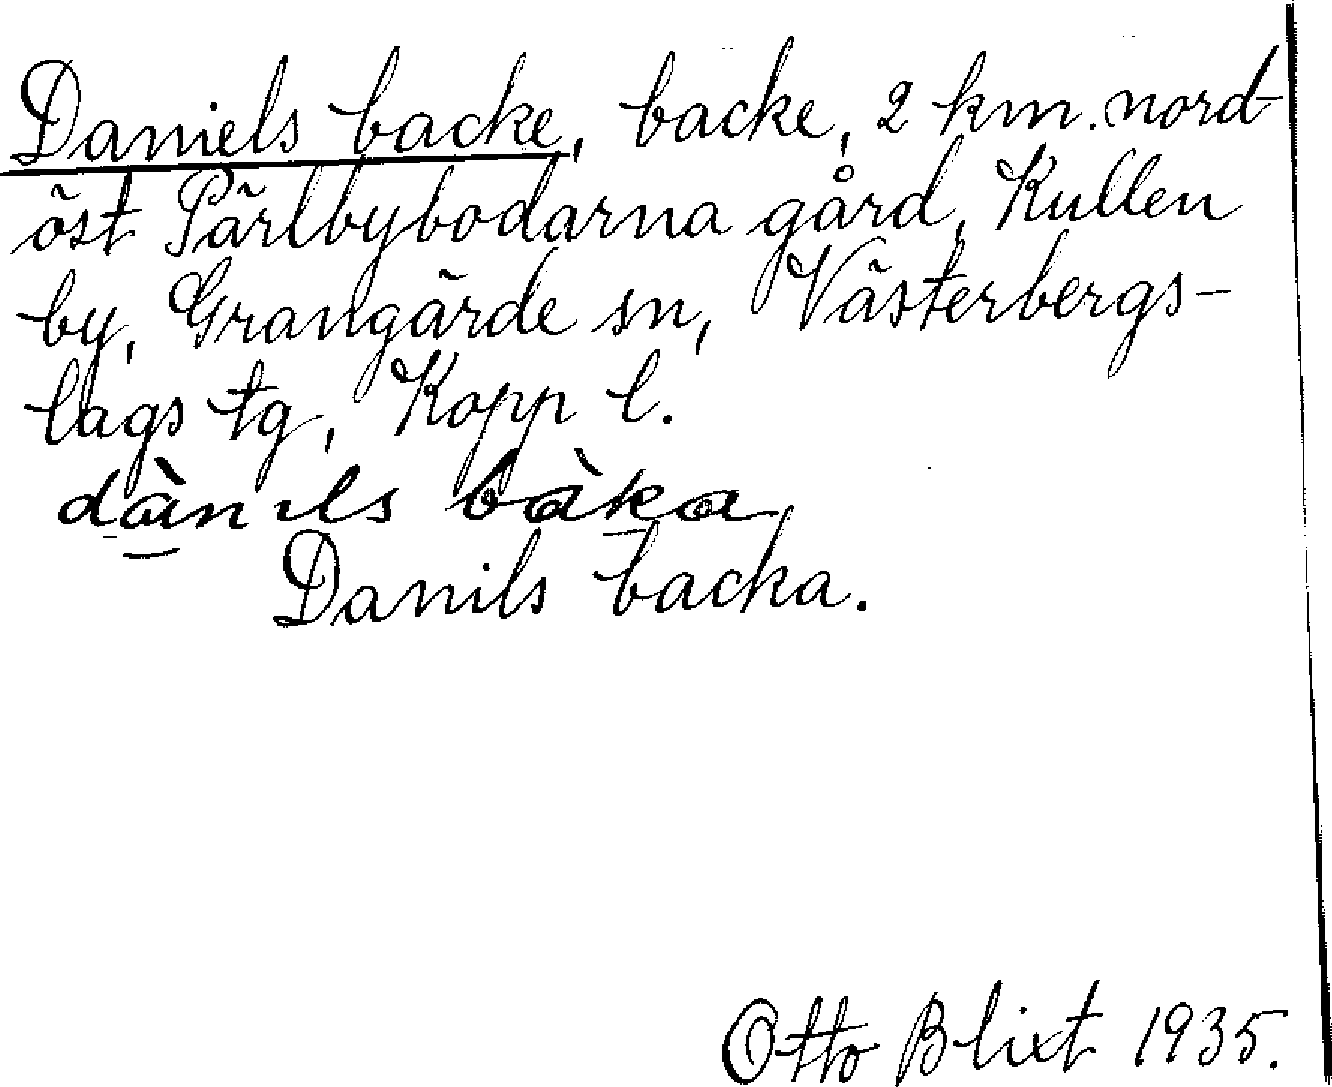 Daniels backe, backe, 2 km. nord-
öst Pärlbybodarna gård, Kullen
by, Grangärde sn, Västerbergs-
lags tg, Kopp l.
dànils bàka
Danils backa.
Otto Blixt 1935.